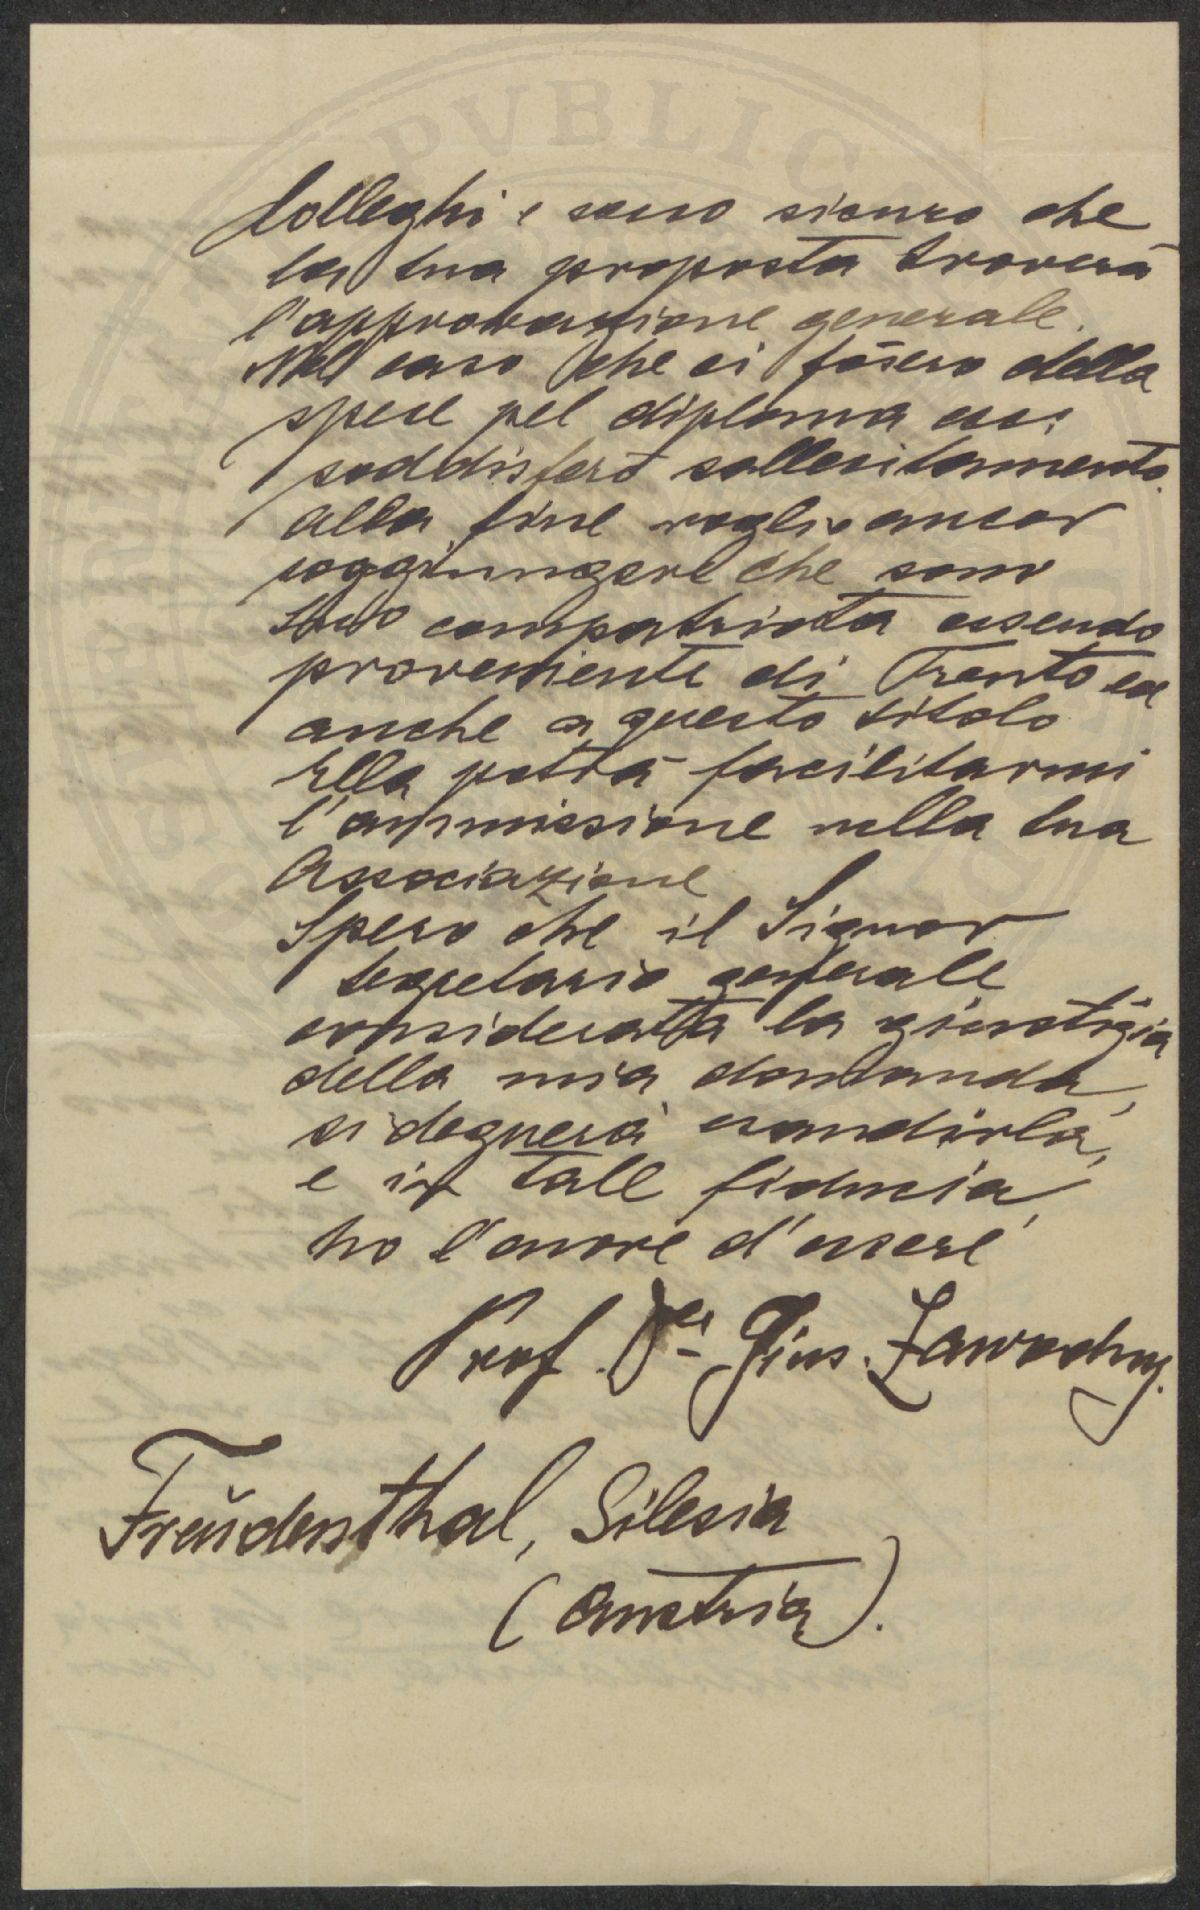 Colleghi e sono sicuro che
la sua proposta troverà
l'approvazione generale.
Nel caso che ci fossero delle
spese pel diploma ecc:
soddisferò sollecitamente.
Alla fine voglio ancor
soggiungere che sono
Suo compatriota essendo
proveniente di Trento ed
anche a questo titolo
Ella potrà facilitarmi
l'ammissione nella sua
Associazione
Spero che il Signor
segretario generale
considerata la giustizia
della mia domanda,
si degnerà esaudirla,
e in tale fiducia,
ho l'onore d'essere
Prof. Dr Gius. Zawodny.
Freudenthal, Silesia
(Austria).
PVBLIC